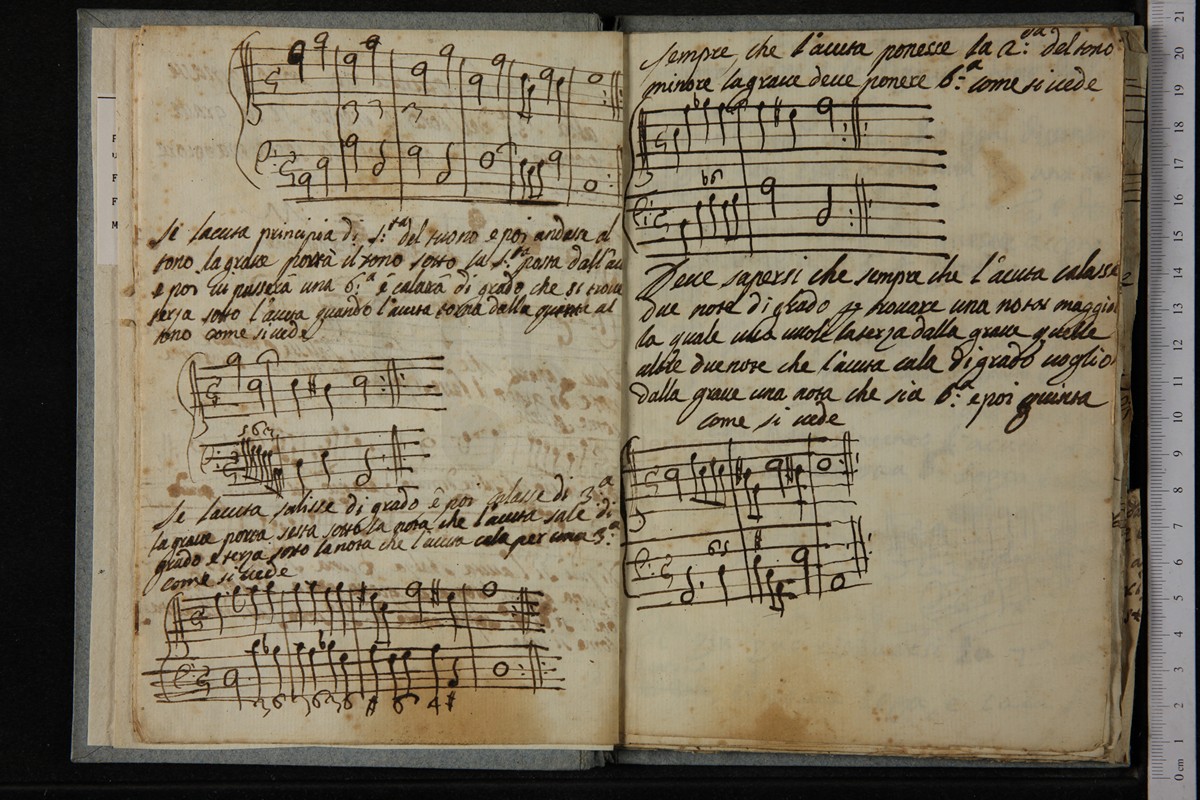 3 3 3
Se l'acuta principia di 5.ta del tuono e poi andasse al
tono la grave porrà il tono sotto la 5.ta posta dall'acu
e poi vi passerà una 6.a e calarà di grado che si trove
terza sotto l'acuta quando l'acuta torna dalla quinta al
tono come si vede
5 6 3
Se l'acuta salisse di grado e poi calasse di 3.a
la grave porrà sesta sotto la nota che l'acuta sale di
grado e terza sotto la nota che l'acuta cala per una 3.a
come si vede
3 6 3 6 3 6 # 6 4 #
sempre, che l'acuta ponesse la 2.da del tono
minore la grave deve ponere 6.a come si vede
b6
Deve sapersi che sempre che l'acuta calasse
due note di grado trovare una nota maggior
la quale una vuole la terza dalla grave quelle
altre due note che l'acuta cala di grado voglio
dalla grave una nota che sia 6.a e poi quinta
come si vede
6 5 #